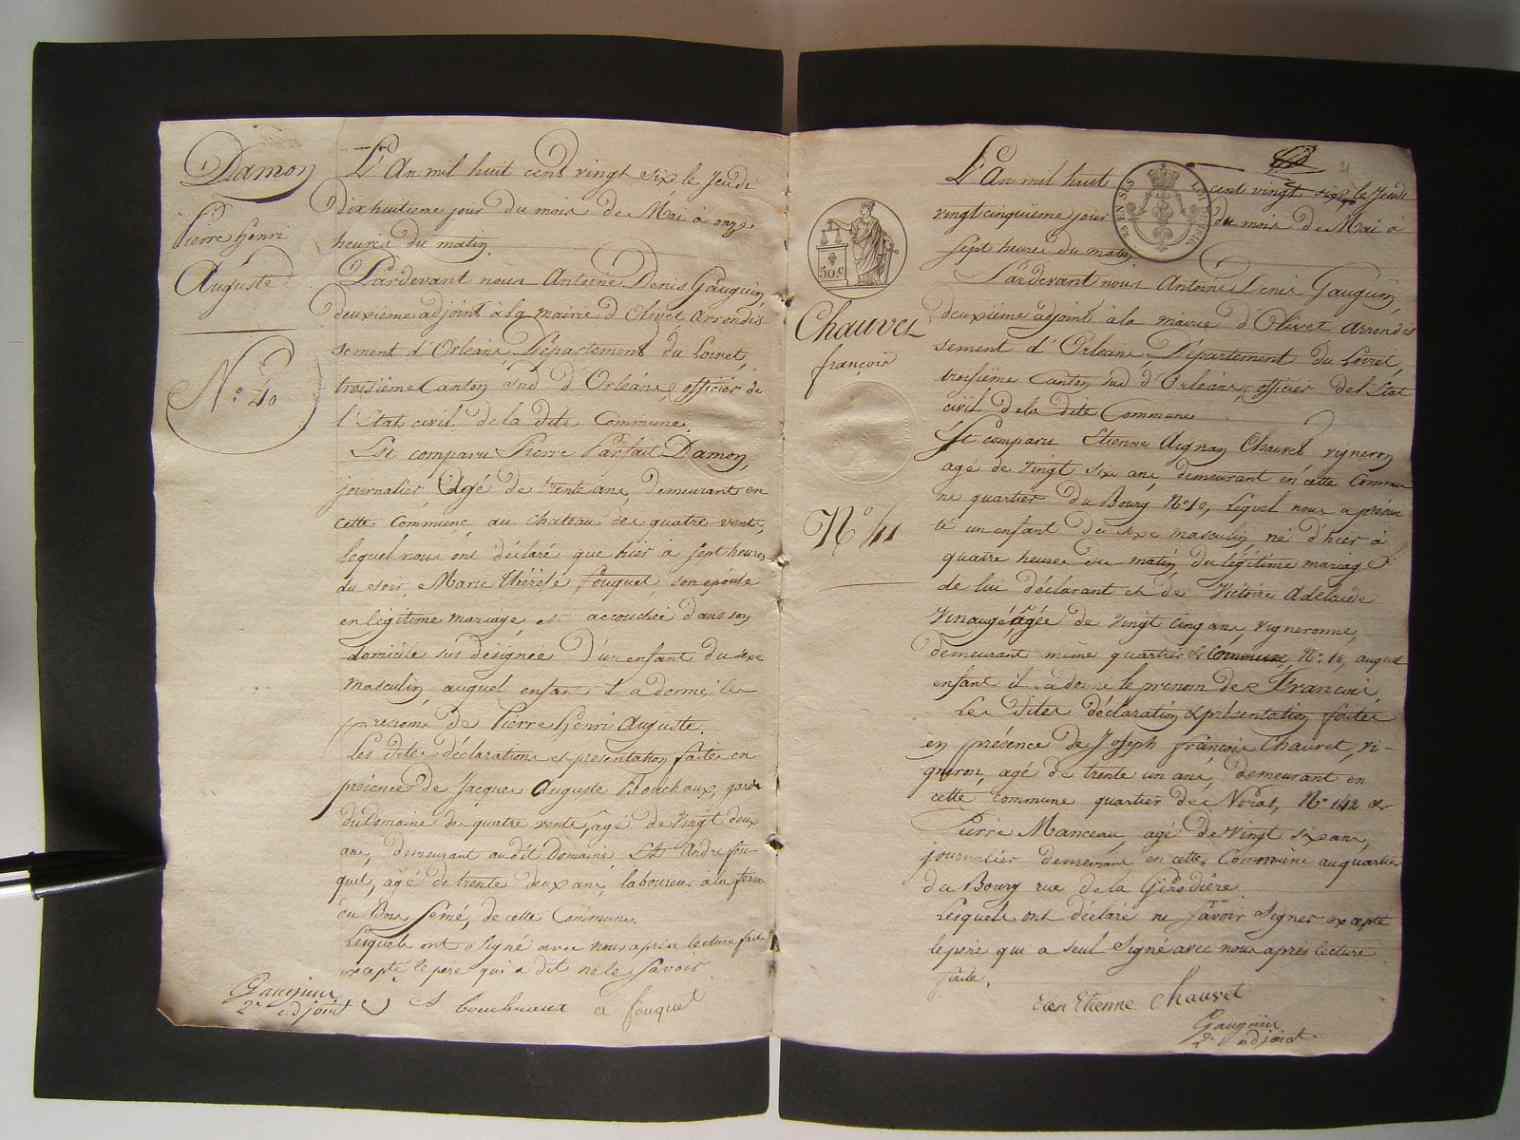 Damon
Pierre henri
Auguste
N.o 40
L'An mil huit cent vingt six le Jeudi
dix huitieme jour du mois de Mai à onze
heures du matin
Pardevant nous Antoine Denis Gauguin,
deuxième adjoint à la mairie d'Olivet arrondis
sement d'Orléans Département du Loiret,
troisième Canton sud d'Orléans, officier de
l'Etat civil de la dite Commune.
Est comparu Pierre Parfait Damon,
journalier Agé de trente ans, demeurant en
cette Commune au chateau des quatre vents,
lequel nous ont déclaré que hier à sept heures
du soir, Marie Thérèse fouquet, son épouse
en légitime mariage est accouchée dans son
domicile sus désignée D'un enfant du sexe
masculin auquel enfant il a donné les
prenoms de Pierre henri Auguste.
Les dites déclarations et présentation faites en
présence de Jacques Auguste Bouchaux, garde
du Domaine de quatre vents, agé de vingt deux
ans, demeurant au dit Domaine Et André fou-
quet, agé de trente deux ans laboureur à la ferme
du Bois semé, de cette Commune.
Lesquels ont signé avec nous après lecture faite
excepté le pere qui a dit ne le savoir
Gauguin
2e adjoint
A bouchaux a fouquet
L'An mil huit cent vingt six le Jeudi
vingt cinquieme jour du mois de Mai à
sept heures du matin
50 c
Chauvet
françois
N.o 41
Pardevant nous Antoine Denis Gauguin,
deuxième adjoint à la mairie d'Olivet arrondis
sement d'Orléans Département du Loiret,
troisième Canton sud d'Orléans, officier de l'Etat
civil de la dite Commune
Est comparu Etienne Aignan Chauvet vigneron
agé de vingt six ans, demeurant en cette Commu
ne quartier du Bourg No 10, lequel nous a présen
té un enfant du sexe masculin né d'hier à
quatre heures du matin du légitime mariage
de lui déclarant et de Victoire Adelaide
Vinauger, agée de vingt cinq ans, vigneronne,
demeurant même quartier & Commune, No 10, auquel
enfant il a donné le prenom de François.
Les dites déclaration & présentation faites
en présence de Joseph françois Chauvet, vi-
gneron, agé de trente un ans, demeurant en
cette commune quartier des No 142 &
Pierre Manceau, agé de vingt six ans,
journalier demeurant en cette Commune au quartier
du Bourg rue de la Girodière
Lesquels ont déclaré ne savoir signer excepté
le pere qui a seul signé avec nous après lecture
faite.
Etienne Chauvet
Gauguin
2e adjoint